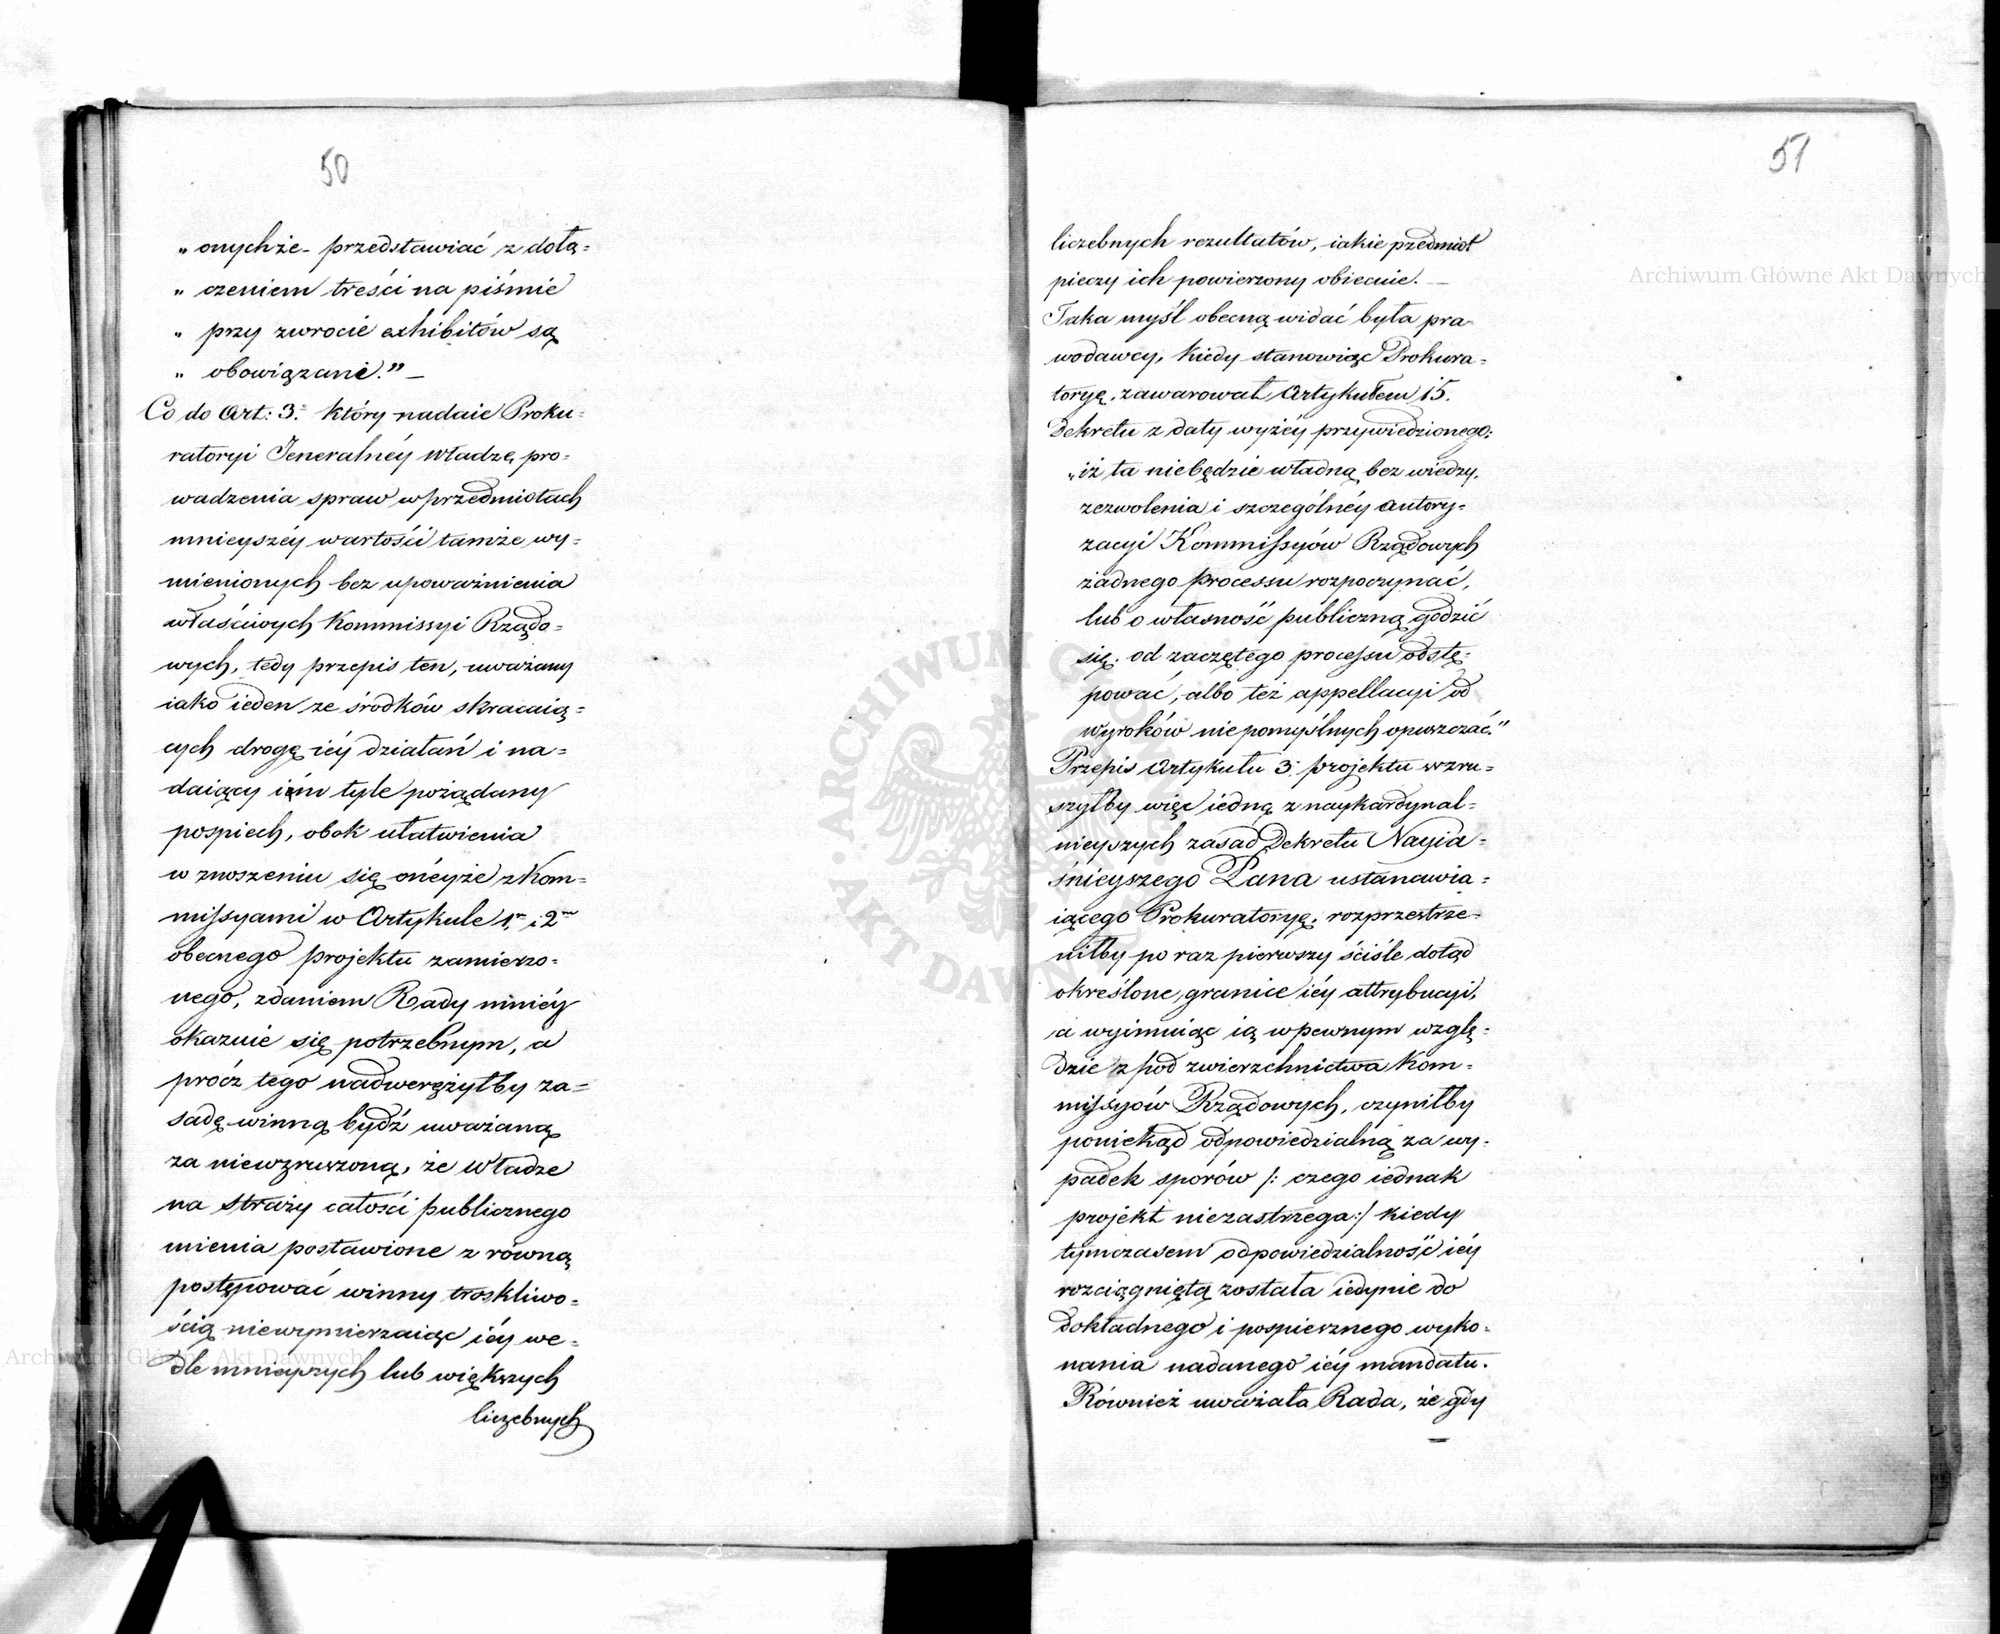 50
„ onychże przedstawiać z dołą=
„ czeniem treści na piśmie
„ przy zwrocie exhibitów są
„ obowiązane.” —
Co do Art: 3. który nadaie Proku=
ratoryi Jeneralnéy władzę pro=
wadzenia spraw w przedmiotach
mnieyszéy wartości tamże wy=
mienionych bez upoważnienia
właściwych Kommissyi Rządo=
wych, tedy przepis ten, uważany
iako ieden ze środków skracaią=
cych drogę iéy działań i na=
daiący im tyle pożądany
pospiech, obok ułatwienia
w znoszeniu się onéyże z Kom=
missyami w Artykule 1m i 2m
obecnego projektu zamierzo=
nego, zdaniem Rady mniéy
okazuie się potrzebnym, a
prócz tego nadwerężyłby za=
sadę winną bydź uważaną
za niewzruszoną, że Władze
na straży całości publicznego
mienia postawione z równą
postępować winny troskliwo=
ścią niewymierzaiąc iéy we=
dle mnieyszych lub większych
liczebnych
51
liczebnych rezultatów, iakie przedmiot
pieczy ich powierzony obiecuie. —
Taka myśl obecną widać była pra
wodawcy, kiedy stanowiąc Prokura=
toryę, zawarował Artykułem 15.
Dekretu z daty wyżéy przywiedzionego:
„iż ta niebędzie władną bez wiedzy,
zezwolenia i szczególnéy autory=
zacyi Kommissyów Rządowych
żadnego processu rozpoczynać,
lub o własność publiczną godzić
się, od zaczętego processu odstę=
pować, albo też appellacyi od
wyroków niepomyślnych opuszczać.”
Przepis Artykułu 3. projektu wzru=
szyłby więc iedną z naykardynal=
nieyszych zasad Dekretu Nayia=
śnieyszego Pana ustanawia=
iącego Prokuratoryę, rozprzestrze=
niłby po raz pierwszy ściśle dotąd
określone granice iéy attrybucyi,
a wyimuiąc ią w pewnym wzglę=
dzie z pod zwierzchnictwa Kom=
missyów Rządowych, czyniłby
poniekąd odpowiedzialną za wy=
padek sporów /: czego iednak
projekt niezastrzega :/ kiedy
tymczasem odpowiedzialność iéy
rozciągniętą została iedynie do
dokładnego i pospiesznego wyko=
nania nadanego iéy mandatu.
Również uważała Rada, że gdy
Archiwum Główne Akt Dawnych
Archiwum Główne Akt Dawnych